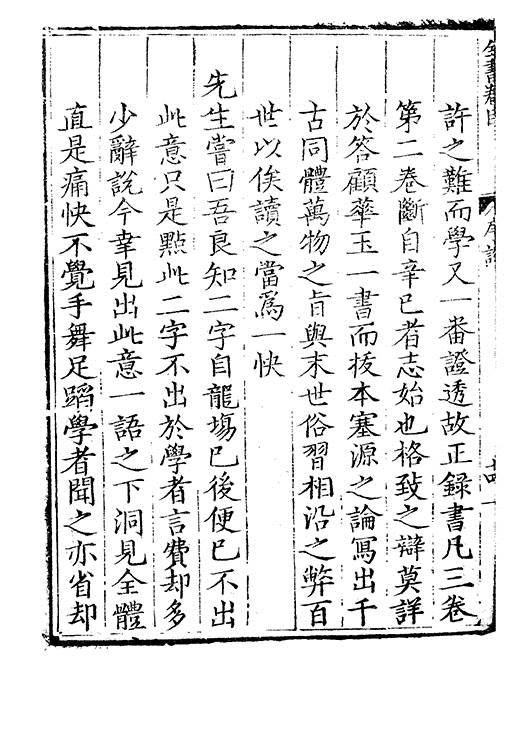 全書卷
序說
許之難而學又一番證透故正錄書凡三卷
第二卷斷自辛巳者志始也格致之辯莫詳
於答顧華玉一書而拔本塞源之論寫出千
古同體萬物之旨與末世俗習相沿之弊百
世以俟讀之當爲一快
先生嘗曰吾良知二字自龍場已後便已不出
此意只是點此二字不出於學者言費却多
少辭說今幸見出此意一語之下洞見全體
直是痛快不覺手舞足蹈學者聞之亦省却